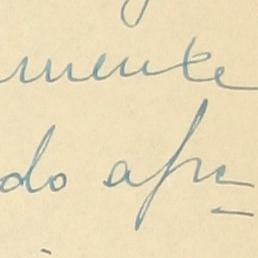 mente
do apre